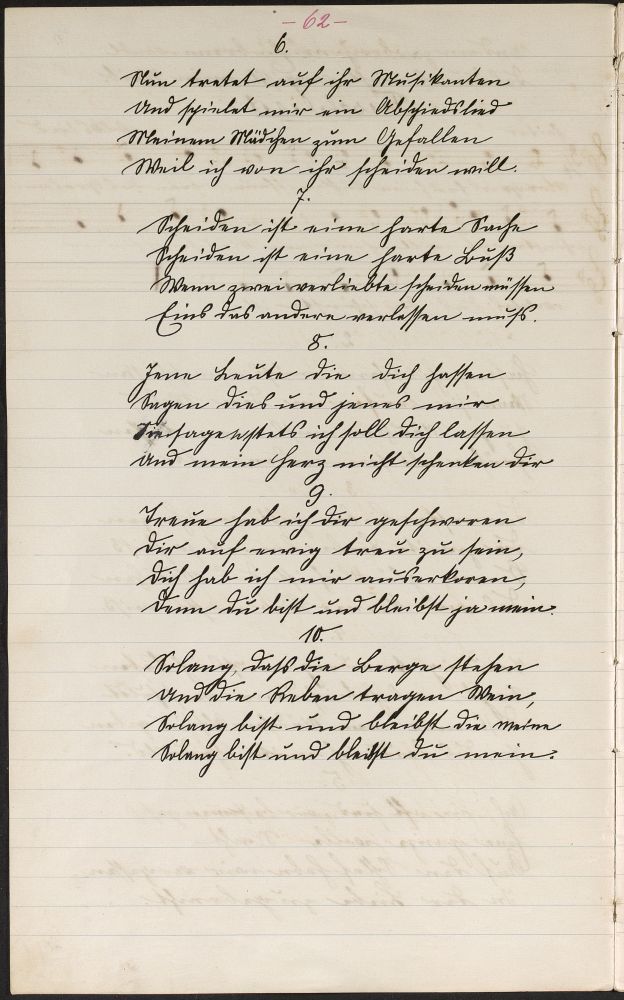 – 62 –
6.
Nun tretet auf ihr Musikanten
Und spielet mir ein Abschiedslied
Meinem Mädchen zum Gefallen
Weil ich von ihr scheiden will.
7.
Scheiden ist eine harte Sache
Scheiden ist eine harte Buß
Wenn zwei verliebte scheiden müssen
Eins das andere verlassen muß.
8.
Jene Leute die dich hassen
Sagen dies und jenes mir
Sie sagen stets ich soll dich lassen
Und mein Herz nicht schenken dir
9.
Treue hab ich dir geschworen
Dir auf ewig treu zu sein,
Dich hab ich mir auserkoren,
Denn du bist und bleibst ja mein.
10.
Solang, daß die Berge stehen
Und die Reben tragen Wein,
Solang bist und bleibst die meine
Solang bist und bleibst du mein.